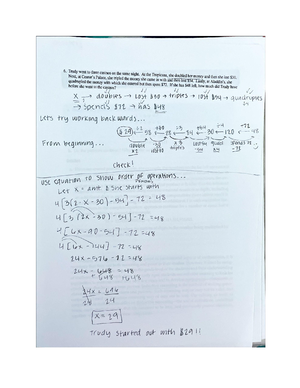 6. Trudy went to three casinos on the same night. At the Tropicana, she doubled her money and then lost $30.
Next, at Caesar's Palace, she tripled the money she came in with and then lost $54. Lastly, at Aladdin's, she
quadrupled the money with which she entered but then spent $72. If she has $48 left, how much did Trudy have
before she went to the casinos?
X → doubles → lost $30 → triples → lost $54 → quadruples
→ spends $72 → has $48
Lets try working backwards...
$29 58 28 84 30 120 -72 48
From beginning...
check!
Use equation to show order of operations...
Let x = amt $ she starts with
4[3(2·x-30)-54]-72=48
4[3(2x-30)-54]-72=48
4[6x-90-54]-72=48
4[6x-144]-72=48
24x-576-72=48
24x-648=48
+648 +648
24x = 696
24 24
x=29
Trudy started out with $29!!